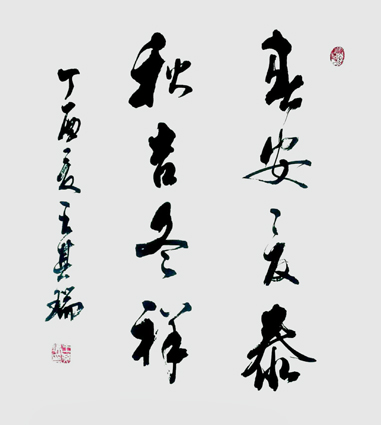 春安夏泰
秋吉冬祥
丁酉夏王其瑞